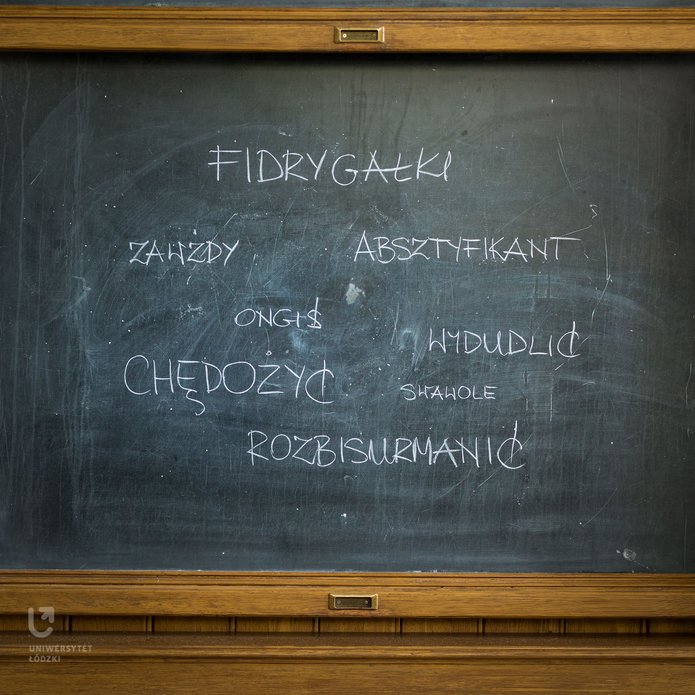 FIDRYGAŁKI
ZAWŻDY ABSZTYFIKANT
ONGIŚ
WYDUDLIĆ
CHĘDOŻYĆ
SWAWOLE
ROZBISURMANIĆ
UNIWERSYTET
ŁÓDZKI